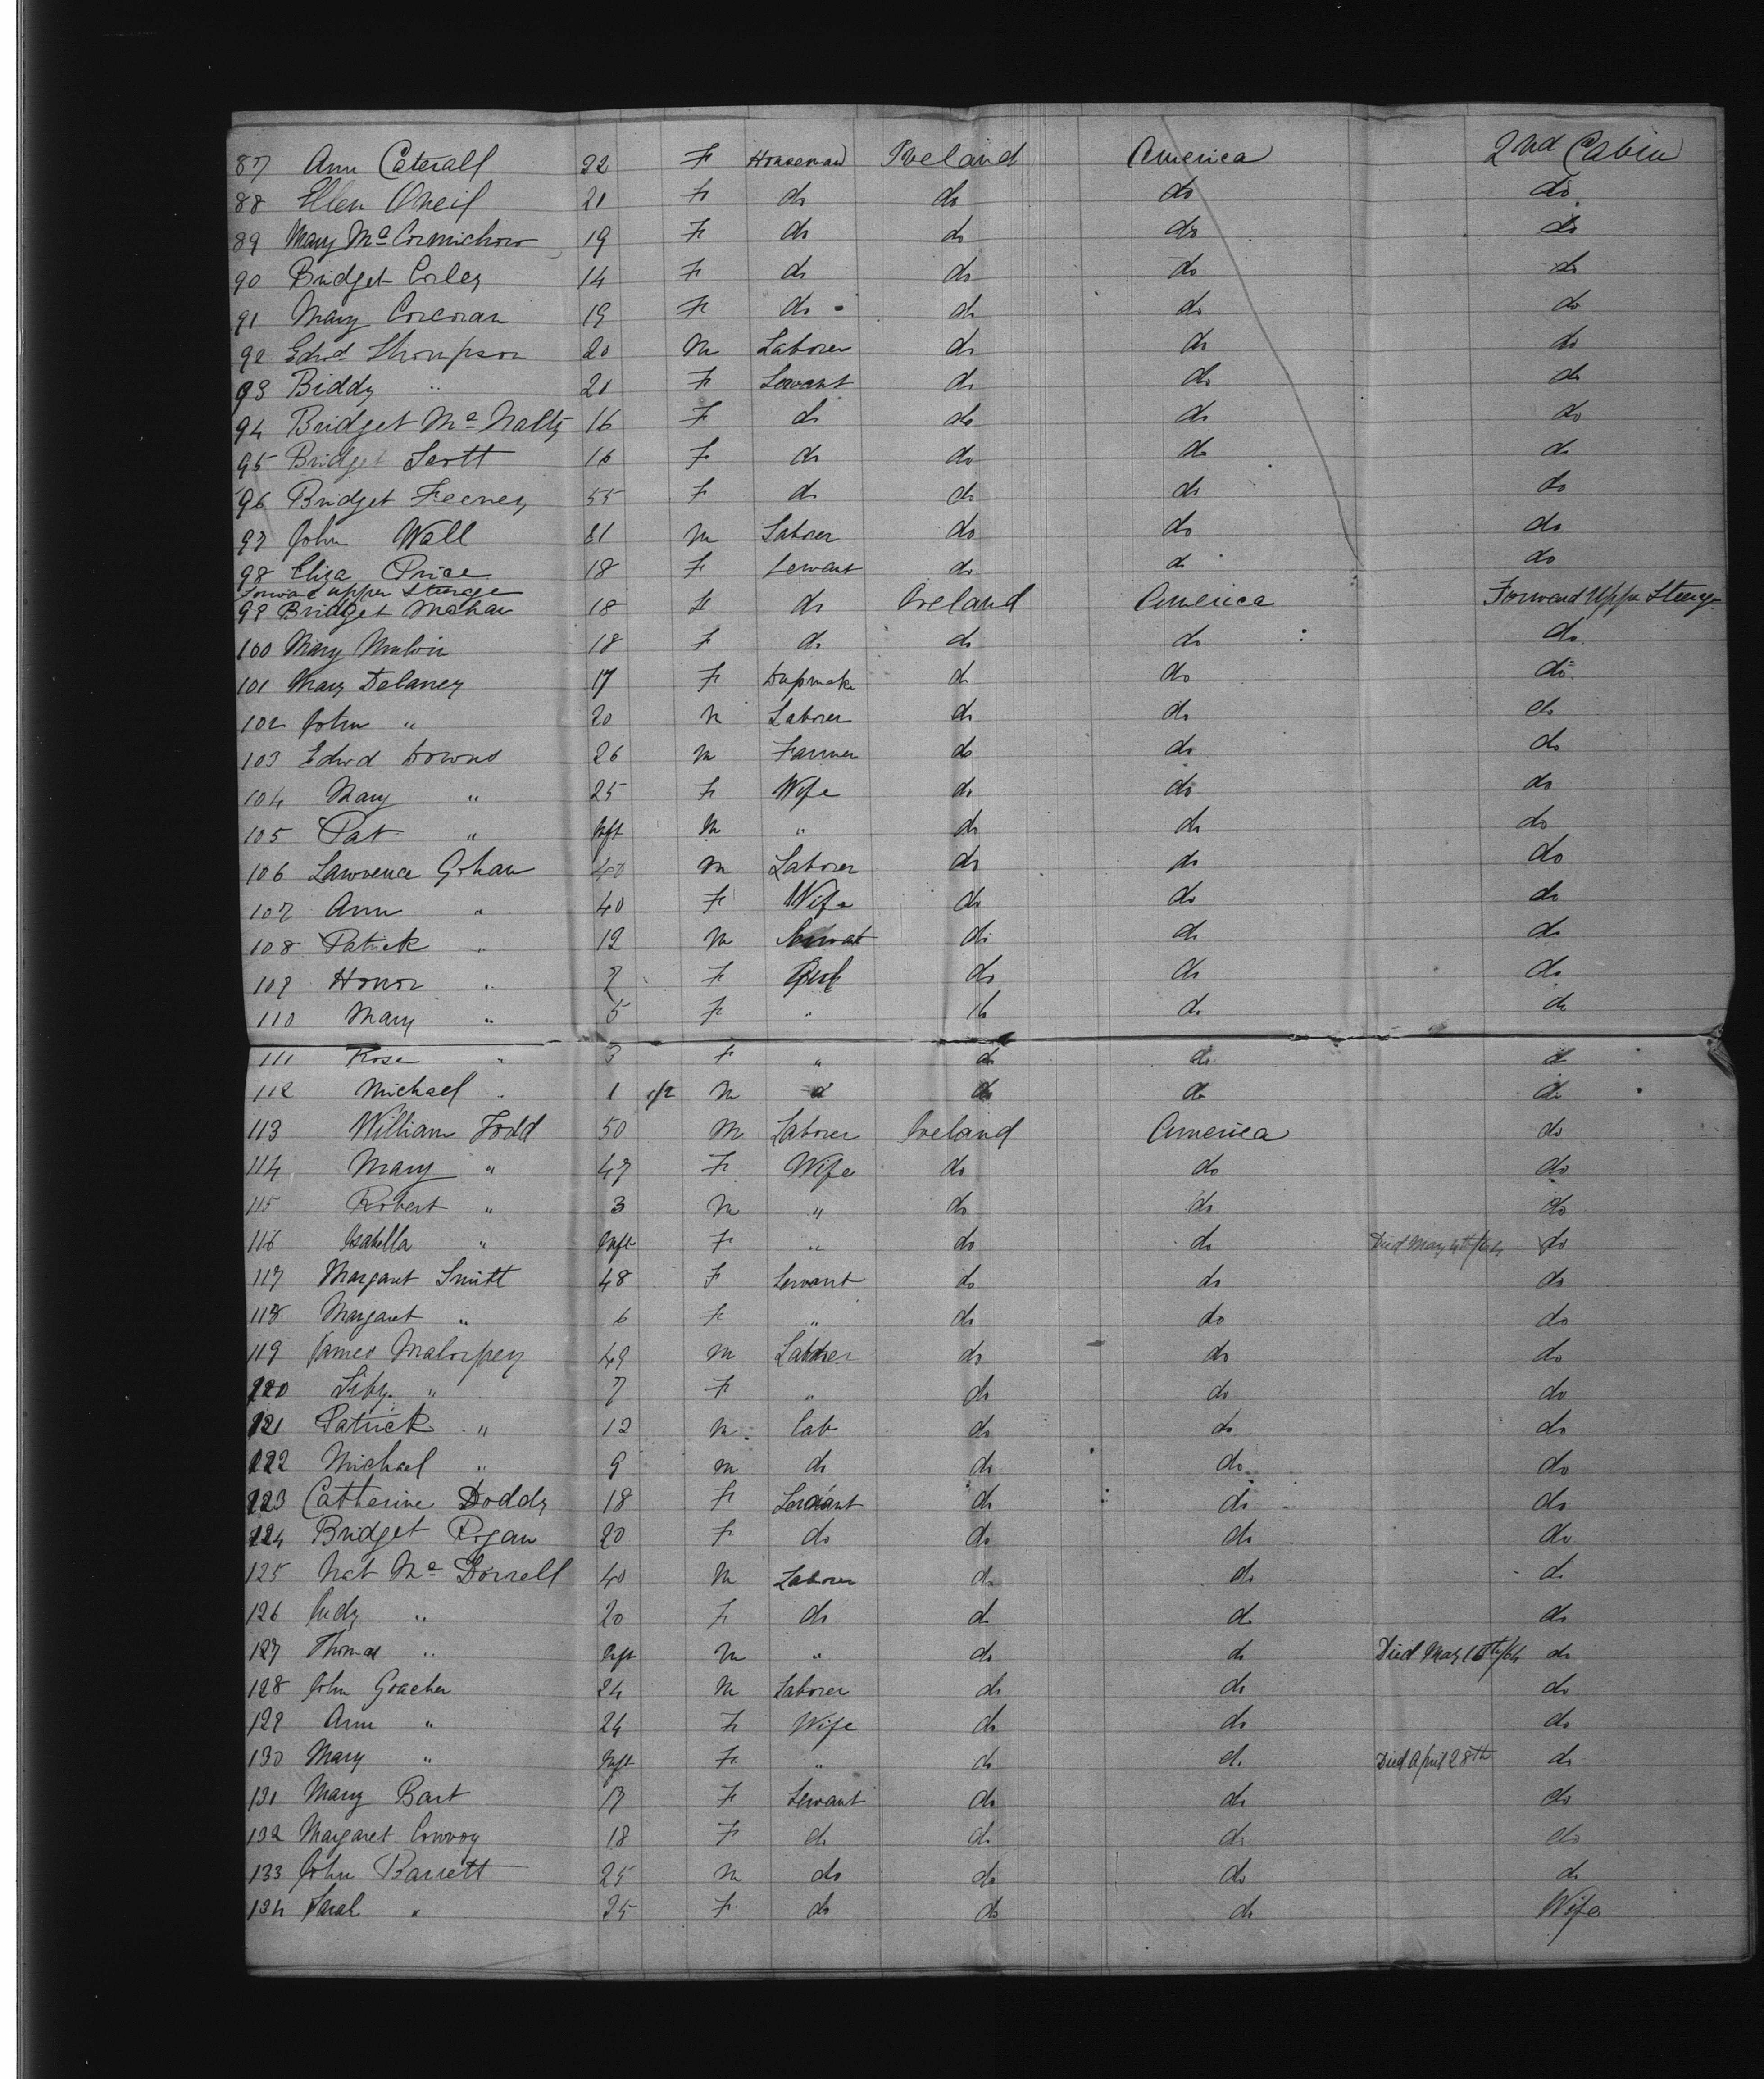 87 Ann Caterall 22 F Housemaid Ireland America 2nd Cabin
88 Ellen Oneil 21 F do do do do
89 Mary Mc 19 F do do do do
90 Bridget Corley 14 F do do do do
91 Mary Corcoran 19 F do do do do
92 Edwd Thompson 20 M Laborer do do do
93 Biddy " 21 F Servant do do do
94 Bridget Mc Nally 16 F do do do do
95 Bridget Scott 16 F do do do do
96 Bridget Feeney 55 F do do do do
97 John Wall M Laborer do do do
98 Eliza Price 18 F Servant do do do
Forward upper Steerage
99 Bridget Mahan 18 F do Ireland America Forward Upper Steerage
100 Mary 18 F do do do do
101 Mary Delaney 17 F do do do
102 John " 20 M Laborer do do do
103 Edwd Downs 26 M Farmer do do do
104 Mary " 25 F Wife do do do
105 Pat " Inft M " do do do
106 Lawrence Gohan 40 M Laborer do do do
107 Ann " 40 F Wife do do do
108 Patrick " 12 M Servant do do do
109 Honor " 7 F do do do
110 Mary " 5 F " do do do
111 Rose " 3 F " do do do
112 Michael " 1 1/2 M do do do
113 William Todd 50 M Laborer Ireland America do
114 Mary " 47 F Wife do do do
115 Robert " 3 M " do do do
116 Isabella " Inft F " do do Died May do
117 Margaret Smitt 48 F Servant do do do
118 Margaret " 6 F " do do do
119 James Malorpey 49 M Laborer do do do
120 " 7 F " do do do
121 Patrick " 12 M Lab do do do
122 Michael " 9 M do do do do
123 Catherine Doddy 18 F Servant do do do
124 Bridget Rogan 20 F do do do do
125 Nat Mc Dornell 40 M Laborer do do do
126 Judy " 20 F do do do do
127 Thomas " Inft M " do do Died May do
128 John Goacher 24 M Laborer do do do
129 Ann " 24 F Wife do do do
130 Mary " Inft F " do do Died April 28th do
131 Mary Bart 17 F Servant do do do
132 Margaret Conroy 18 F do do do do
133 John Barrett 25 M do do do do
134 Sarah " 25 F do do do Wife